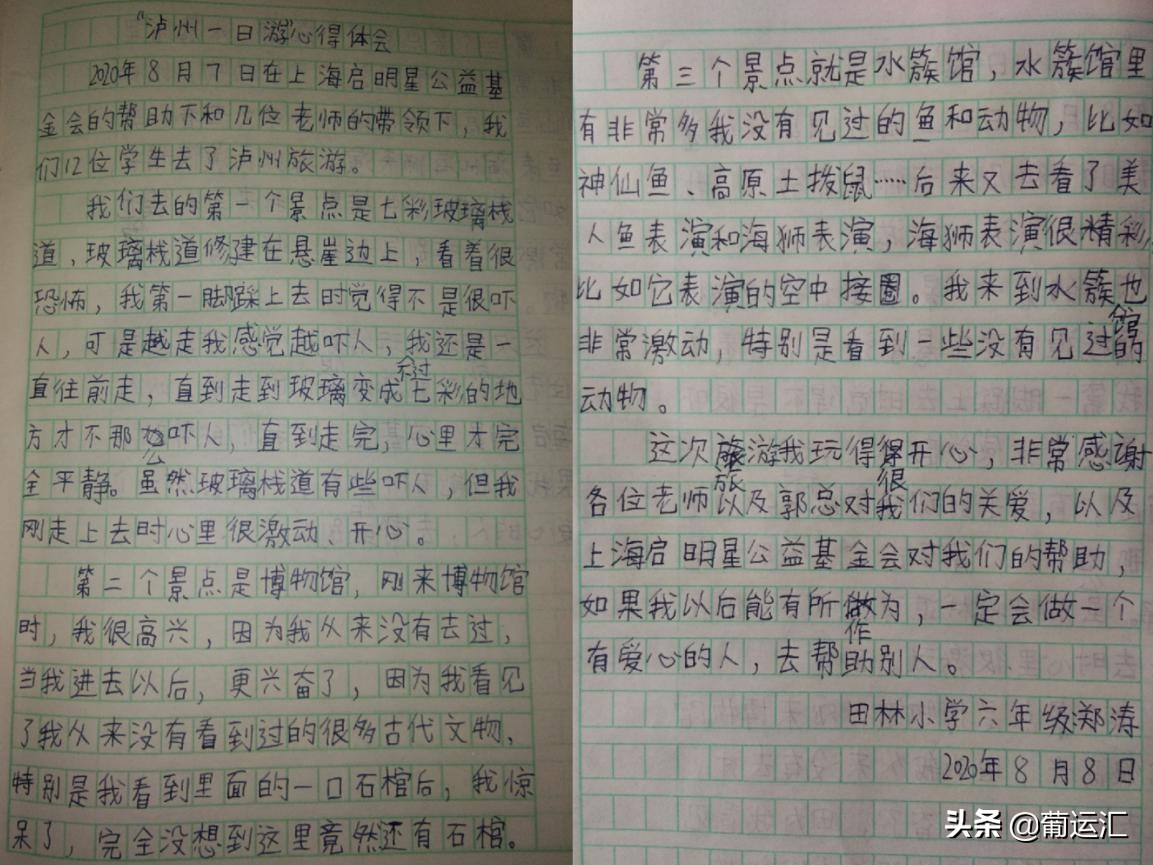 “泸州一日游”心得体会
2020年8月7日在上海启明星公益基
金会的帮助下和几位老师的带领下，我
们12位学生去了泸州旅游。
我们去的第一个景点是七彩玻璃栈
道，玻璃栈道修建在悬崖边上，看着很
恐怖，我第一脚踩上去时觉得不是很吓
人，可是越走我感觉越吓人，我还是一
直往前走，直到走到玻璃变成七彩的地
方才不那么吓人，直到走完，心里才完
全平静。虽然玻璃栈道有些吓人，但我
刚走上去时心里很激动、开心。
第二个景点是博物馆，刚来博物馆
时，我很高兴，因为我从来没有去过，
当我进去以后，更兴奋了，因为我看见
了我从来没有看到过的很多古代文物，
特别是我看到里面的一口石棺后，我惊
呆了，完全没想到这里竟然还有石棺。
第三个景点就是水簇馆，水簇馆里
有非常多我没有见过的鱼和动物，比如
神仙鱼、高原土拨鼠……后来又去看了美
人鱼表演和海狮表演，海狮表演很精彩，
比如它表演的空中接圈。我来到水簇馆也
非常激动，特别是看到一些没有见过的
动物。
这次旅游我玩得很开心，非常感谢
各位老师以及郭总对我们的关爱，以及
上海启明星公益基金会对我们的帮助，
如果我以后能有所作为，一定会做一个
有爱心的人，去帮助别人。
田林小学六年级郑涛
2020年8月8日
头条 @葡运汇